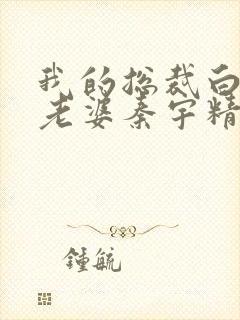 我的总裁白
老婆秦宇精
锺毓